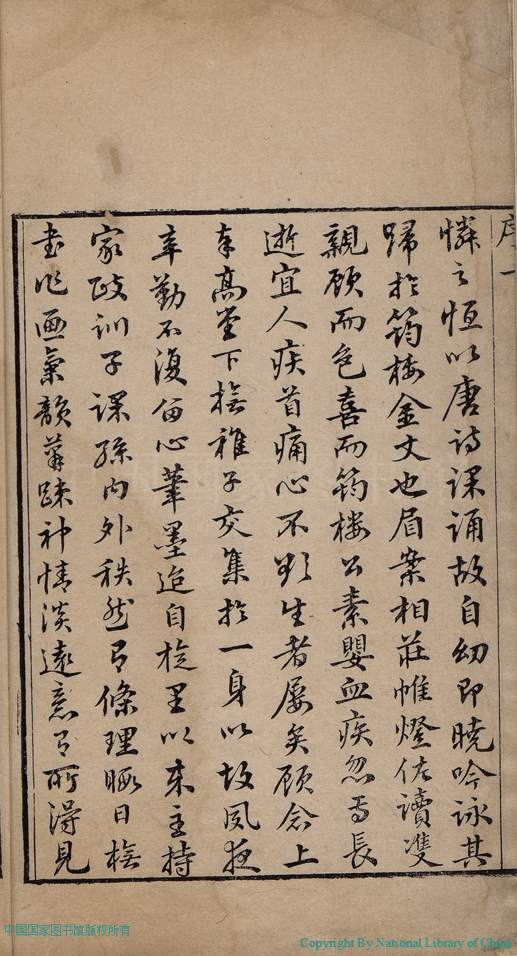 序一
憐之恒以唐詩課誦故自幼即曉吟詠其
歸於筠樓金丈也眉案相莊帷燈佐讀雙
親顧而色喜而筠樓公素嬰血疾忽焉長
逝宜人疾首痛心不欲生者屢矣顧念上
奉高堂下撫稚子交集於一身以故夙夜
辛勤不復留心筆墨迨自旋里以來主持
家政訓子課孫內外秩然有條理暇日撫
書作画氣韻蕭疎神情淡遠意有所得見
中国国家图书馆版权所有
Copyright By National Library of China